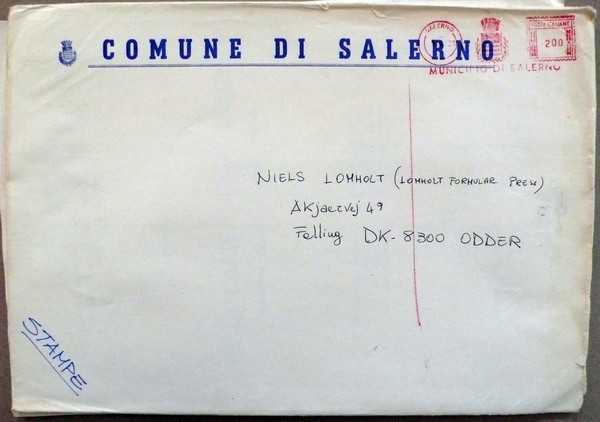 COMUNE DI SALERNO
SALERNO
POSTE ITALIANE
200
MUNICIPIO DI SALERNO
NIELS LOMHOLT (LOMHOLT FORMULAR PRESS)
Akjaervej 49
Falling DK-8300 ODDER
STAMPE